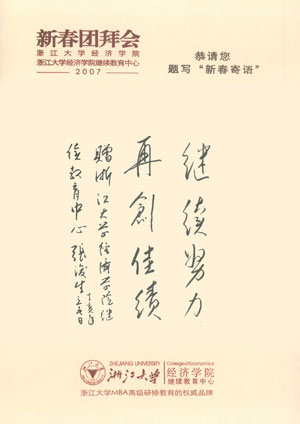 新春团拜会
浙江大学经济学院
浙江大学经济学院继续教育中心
2007
恭请您
题写“新春寄语”
继续努力
再創佳績
赠浙江大学经济学院继
续教育中心 張浚生
丁亥年
ZHEJIANG UNIVERSITY
浙江大学
College of Economics
经济学院
继续教育中心
浙江大学MBA高级研修教育的权威品牌